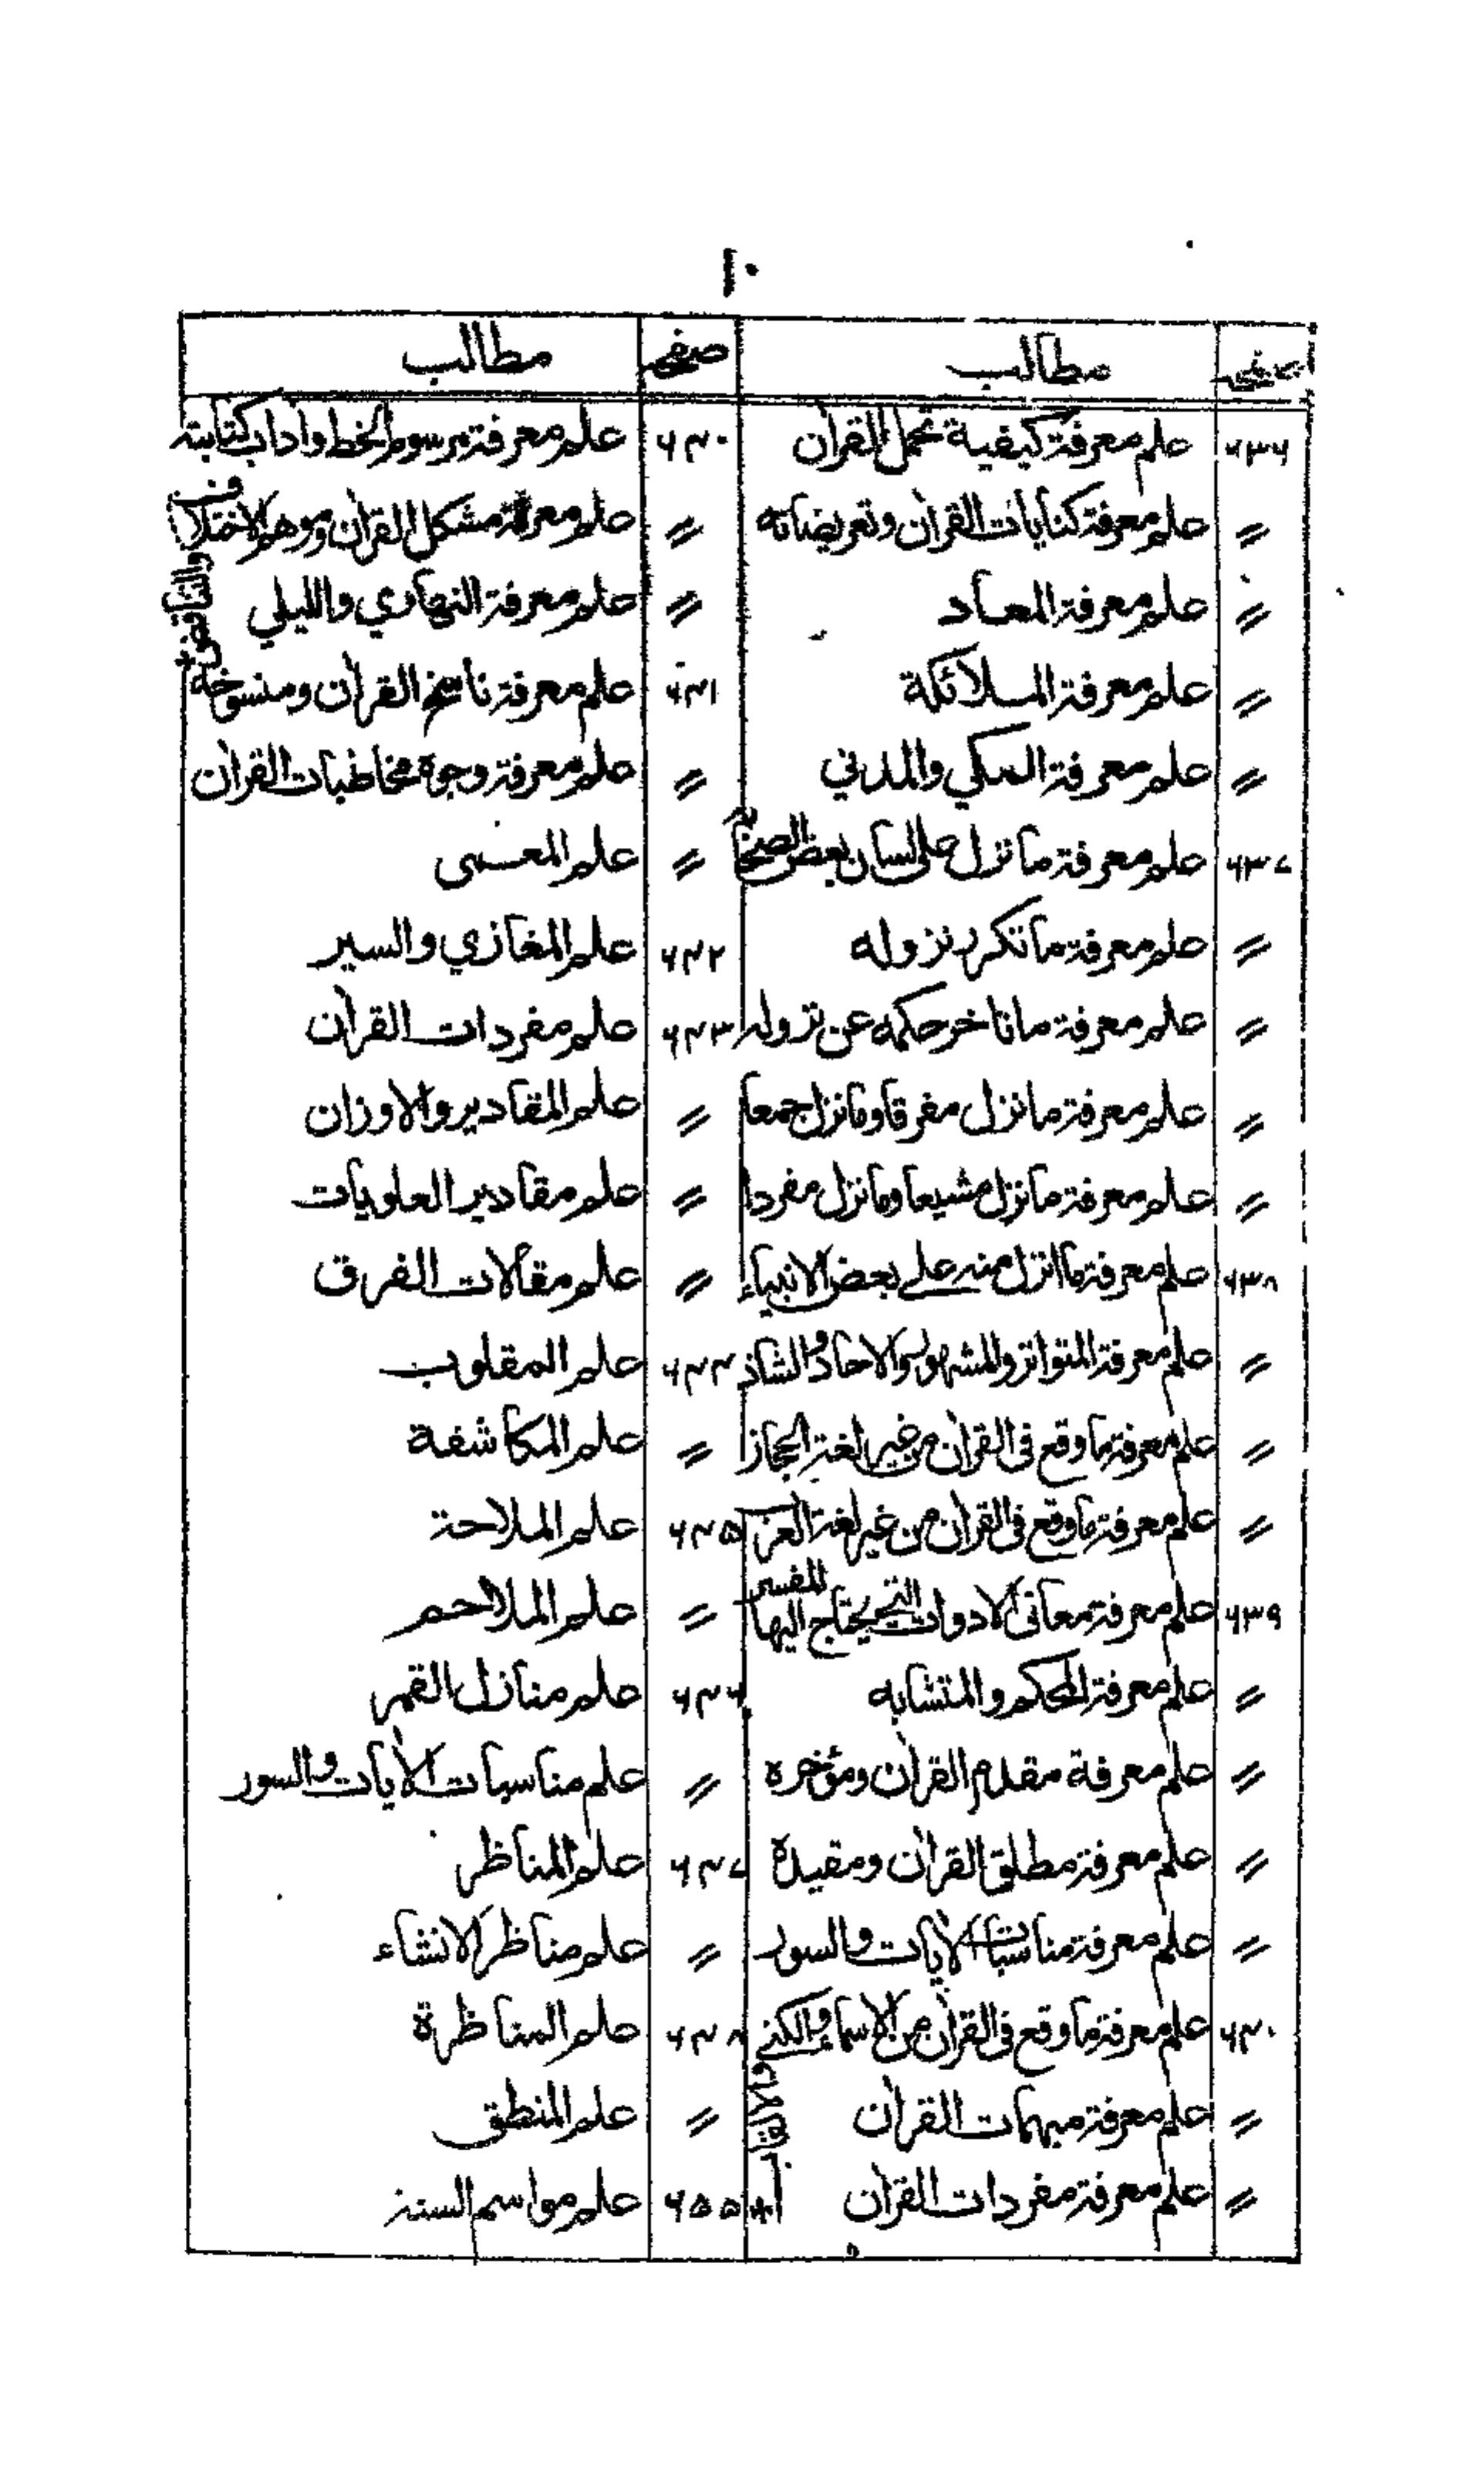 ١٠
صفحه مطالب صفحه مطالب
٦٣٦ علم معرفة كيفية تحمل القرآن ٦٤٠ علم معرفة مرسوم الخط وآداب كتابته
〃 علم معرفة كنايات القرآن وتعريضاته 〃 علم معرفة مشكل القرآن وموهم الاختلاف والتناقض
〃 علم معرفة المعاد 〃 علم معرفة النهاري والليلي
〃 علم معرفة الملائكة ٦٤١ علم معرفة ناسخ القرآن ومنسوخه
〃 علم معرفة المكي والمدني 〃 علم معرفة وجوه مخاطبات القرآن
٦٣٧ علم معرفة ما نزل على لسان بعض الصحابة 〃 علم المعمى
〃 علم معرفة ما تكرر نزوله ٦٤٢ علم المغازي والسير
〃 علم معرفة ما تاخر حكمه عن نزوله ٦٤٣ علم مفردات القرآن
〃 علم معرفة ما نزل مفرقا وما نزل جمعا 〃 علم المقادير والاوزان
〃 علم معرفة ما نزل مشيعا وما نزل مفردا 〃 علم مقادير العلويات
٦٣٨ علم معرفة ما انزل منه على بعض الانبياء 〃 علم مقالات الفرق
〃 علم معرفة المتواتر والمشهور والاحاد والشاذ ٦٤٤ علم المقلوب
〃 علم معرفة ما وقع في القرآن من غير لغة الحجاز 〃 علم المكاشفة
〃 علم معرفة ما وقع في القرآن من غير لغة العرب ٦٤٥ علم الملاحة
٦٣٩ علم معرفة معاني الادوات التي يحتاج اليها المفسر 〃 علم الملاحم
〃 علم معرفة المحكم والمتشابه ٦٤٦ علم منازل القمر
〃 علم معرفة مقدم القرآن ومؤخره 〃 علم مناسبات الآيات والسور
〃 علم معرفة مطلق القرآن ومقيده ٦٤٧ علم المناظر
〃 علم معرفة مناسبات الآيات والسور 〃 علم مناظر الانشاء
٦٤٠ علم معرفة ما وقع في القرآن من الاسماء والكنى والالقاب ٦٤٨ علم المناظرة
〃 علم معرفة مبهمات القرآن 〃 علم المنطق
〃 علم معرفة مفردات القرآن ٦٥٥ علم مواسم السنة